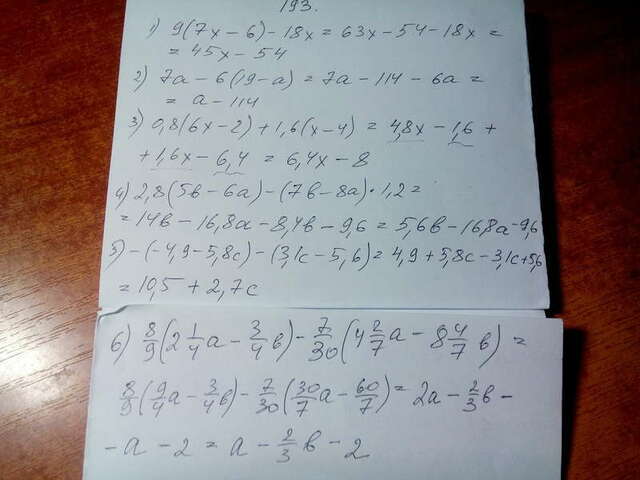 193.
1) 9(7x - 6) - 18x = 63x - 54 - 18x =
= 45x - 54
2) 7a - 6(19 - a) = 7a - 114 - 6a =
= a - 114
3) 0,8(6x - 2) + 1,6(x - 4) = 4,8x - 1,6 +
+ 1,6x - 6,4 = 6,4x - 8
4) 2,8(5в - 6a) - (7в - 8a) · 1,2 =
= 14в - 16,8a - 8,4в - 9,6 = 5,6в - 16,8a - 9,6
5) - (-4,9 - 5,8c) - (3,1c - 5,6) = 4,9 + 5,8c - 3,1c + 5,6
= 10,5 + 2,7c
6) 8/9 (2 1/4 a - 3/4 в) - 7/30 (4 2/7 a - 8 4/7 в) =
8/9 (9/4 a - 3/4 в) - 7/30 (30/7 a - 60/7) = 2a - 2/3 в -
- a - 2 = a - 2/3 в - 2